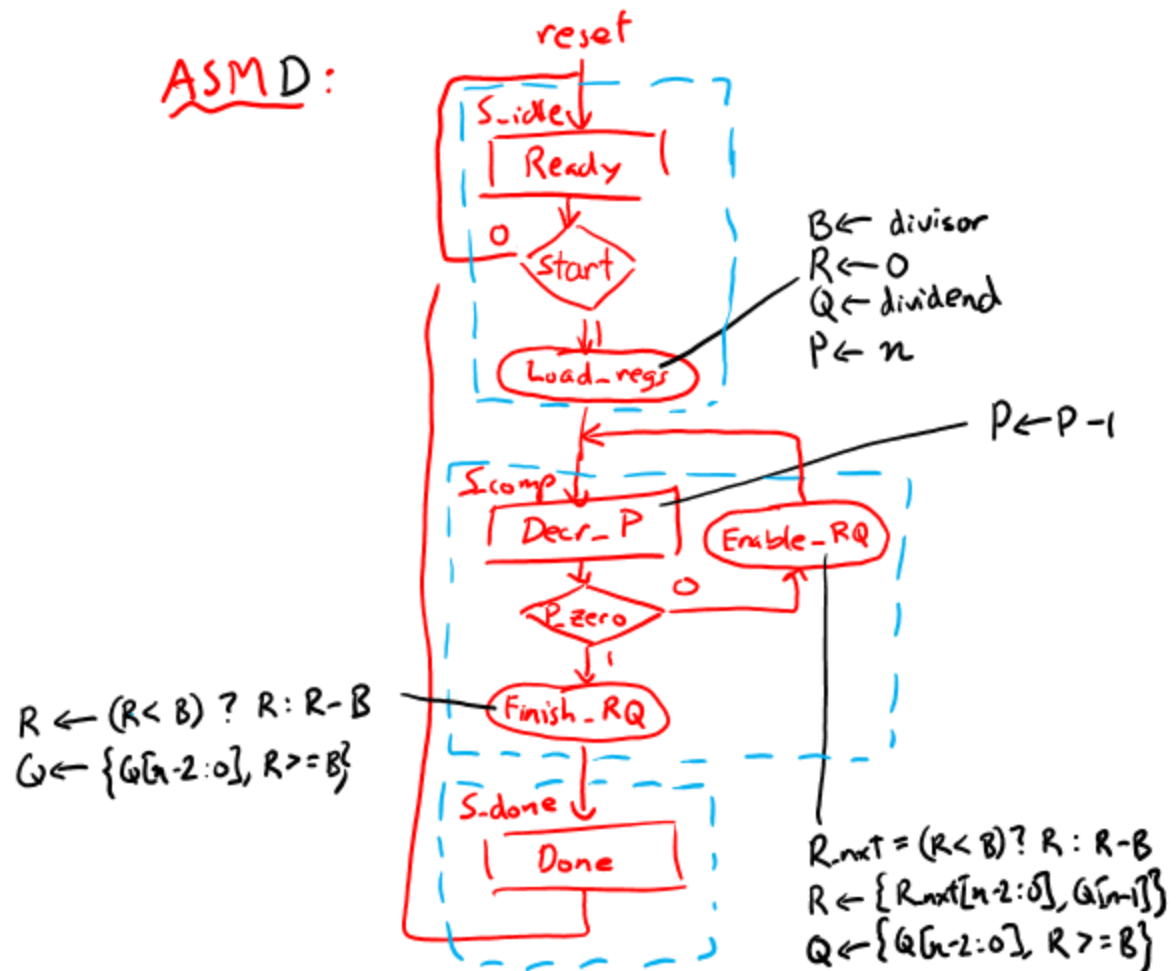 reset
ASMD:
S_idle
Ready
0
start
1
Load_regs
B← divisor
R←0
Q←dividend
P← n
P←P-1
S_comp
Decr_P
Enable_RQ
0
P_zero
1
Finish_RQ
R ← (R< B) ? R: R-B
Q← {Q[n-2:0], R>=B}
S_done
Done
R_nxt = (R< B)? R : R-B
R ←{R_nxt[n-2:0], Q[n-1]}
Q←{Q[n-2:0], R >= B}